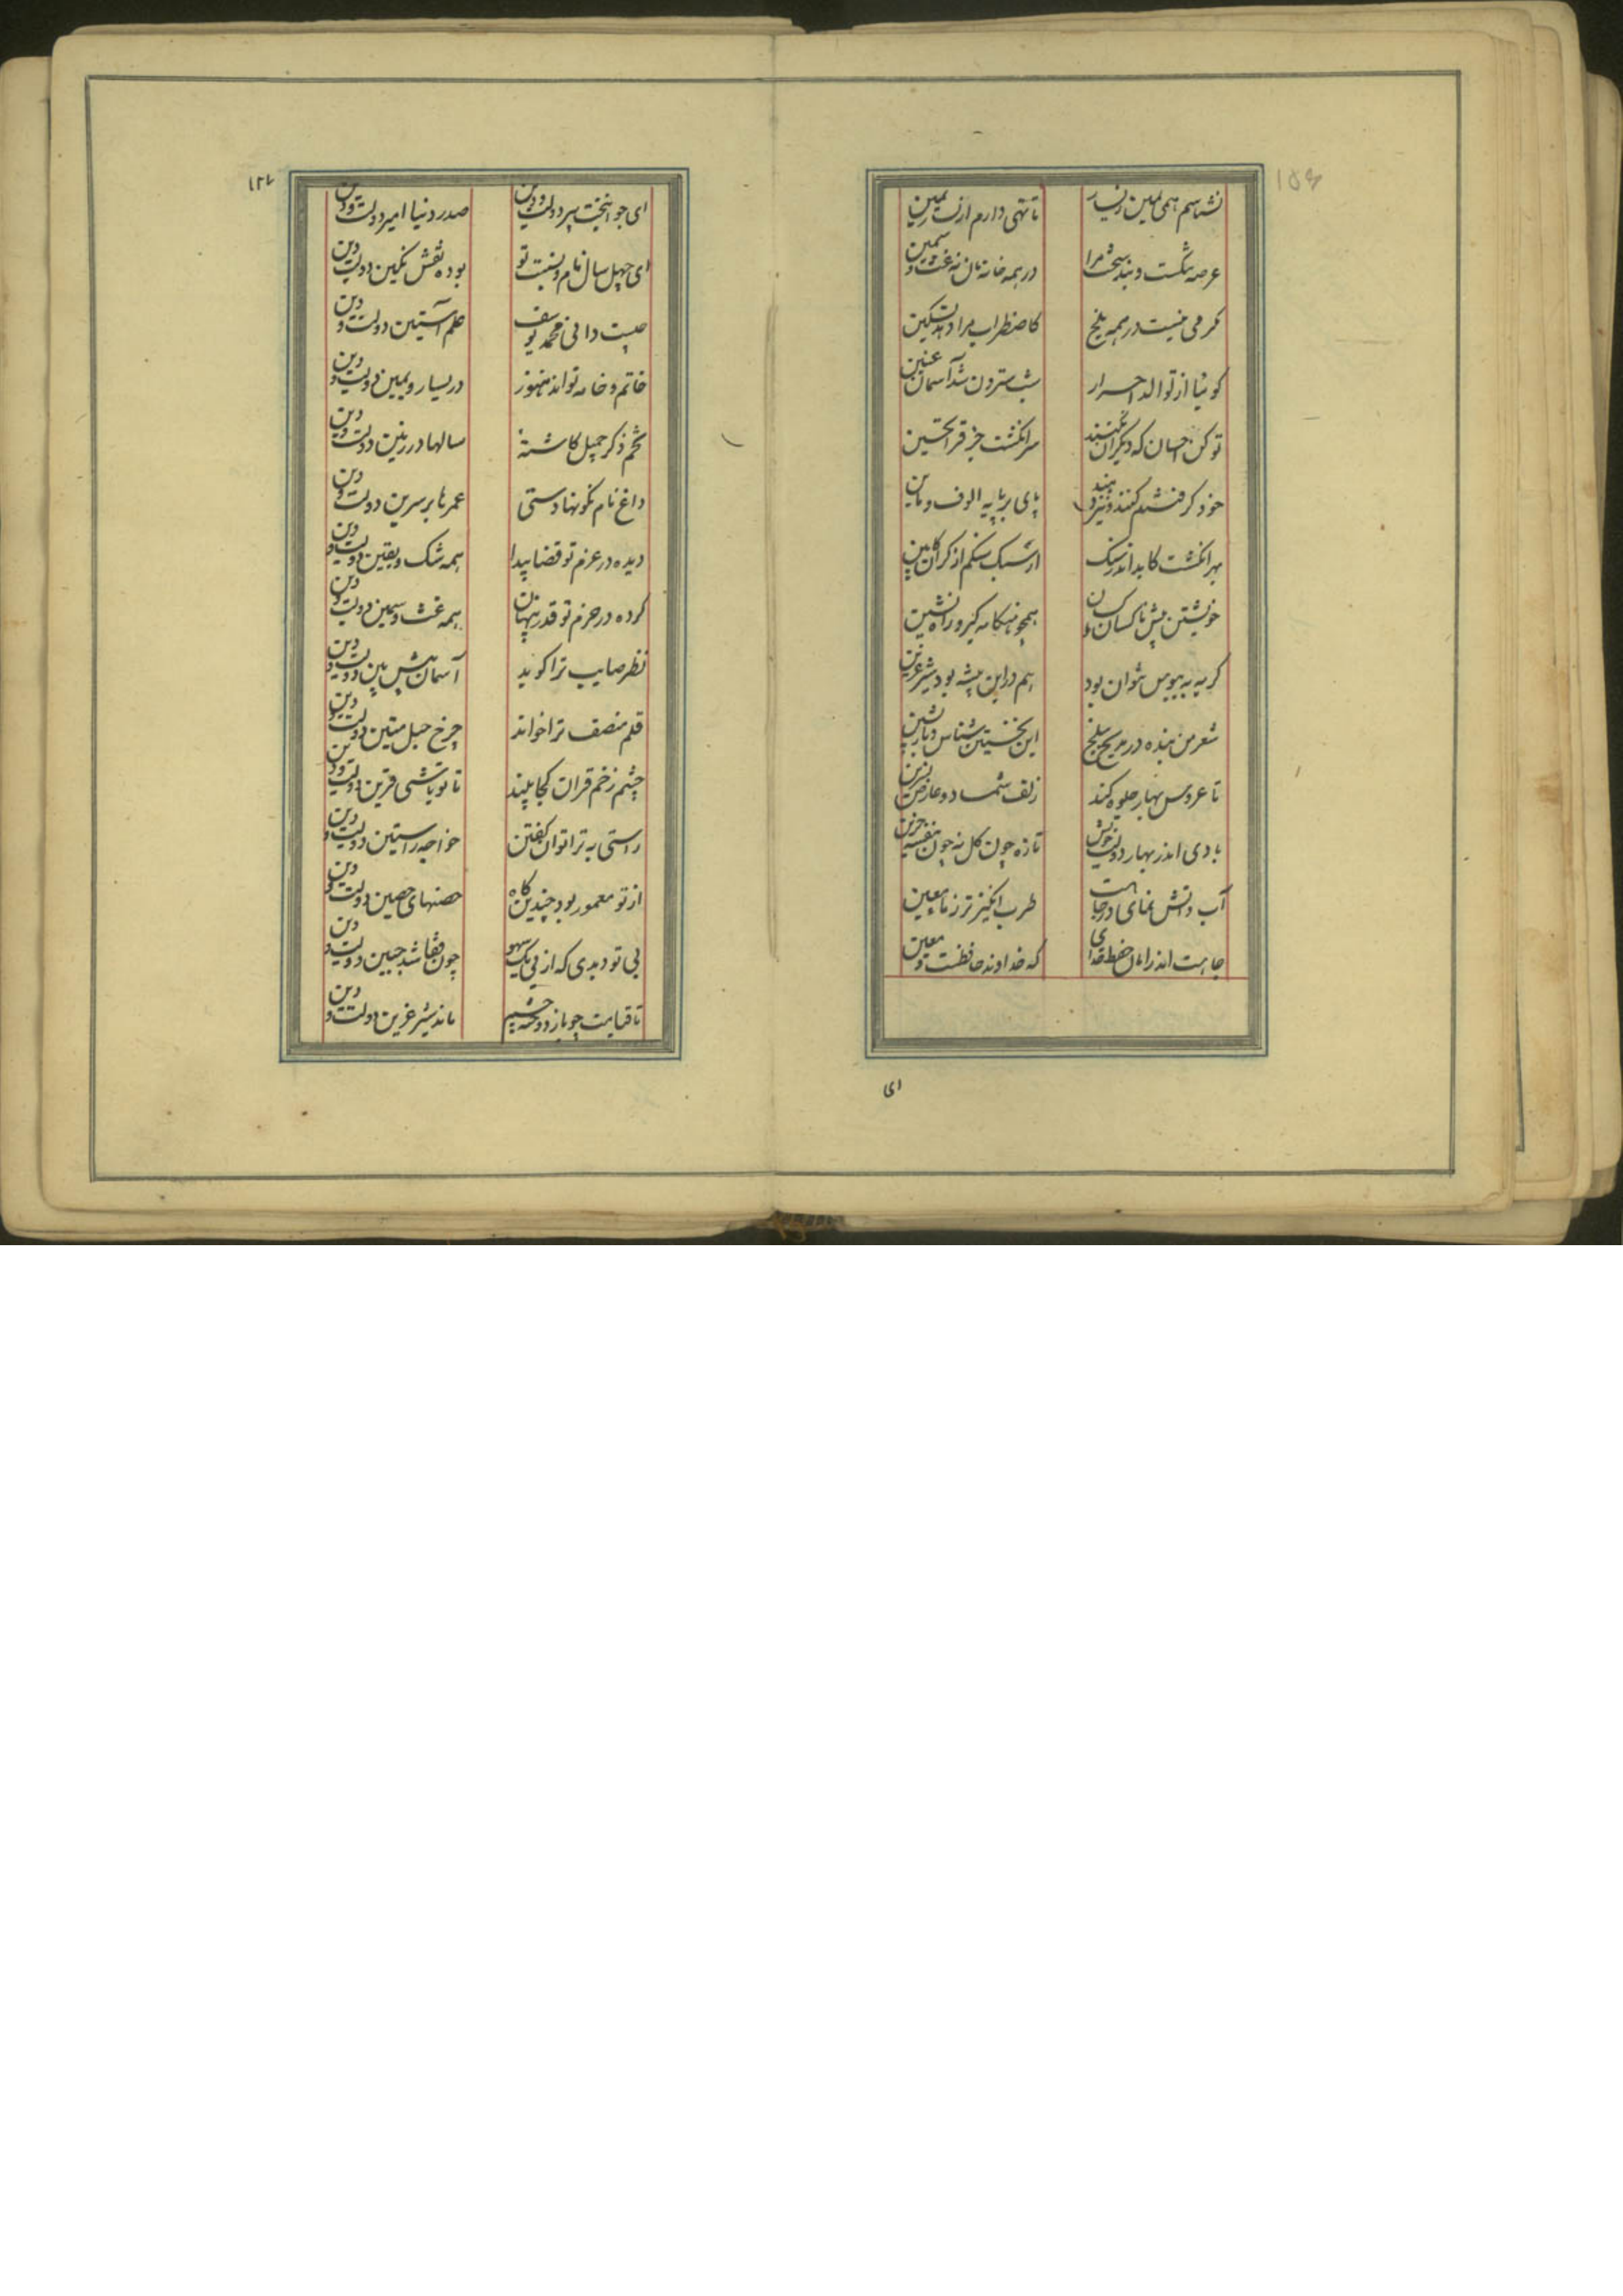 نشناسم همی یمین ز یسار
تا تهی دارم از یسار یمین
عرصه تنگست و بند سخت مرا
در همه خانه نان نه غث و سمین
کرمی نیست در همه بلخ
کاضطراب مرا دهد تسکین
کوئیا از توالد احرار
شب سترون شد آسمان عنین
تو کن احسان که دیکران نکنند
سر انکشت جز قرا تحسین
خود کرفتم کنند و نیز نهند
پای بر پایه الوف و مأین
بهر انکشت کابد اندر سنک
خویشتن پیش ناکسان و کسان
همچو هنکامه کیر و راه نشین
کربه به بیوس نتوان بود
هم در این بیشه بود شیر عرین
شعر من بنده در مدیح بلخ
تا عروس بهار جلوه کند
زلف شمشاد و عارض نسرین
بادی اندر بهار دولت خویش
تازه چون کل نه چون بنفشه حزین
آب و آتش نمای در جاهت
طرب انکیزتر ز ماء معین
جاهت اندر امان حفظ خدای
که خداوند حافظست و معین
ای
ای جوانبخت پیر دولت و دین
صدر دنیا امیر دولت و دین
ای چهل سال نام و نسبت تو
بوده نقش نکین دولت و دین
چیست دانی محمد یوسف
علم آستین دولت و دین
خاتم و خامه تواند هنوز
در یسار و یمین دولت و دین
تخم ذکر جمیل کاشتهٔ
سالها در زمین دولت و دین
داغ نام نکو نهادستی
عمرها بر سرین دولت و دین
دیده در عزم تو قضا پیدا
همه شک و یقین دولت و دین
کرده در حزم تو قدر پنهان
همه غث و سمین دولت و دین
نظر صایب ترا کوید
آسمان پیش بین دولت و دین
قلم منصف ترا خواند
چرخ حبل متین دولت و دین
چشم زخم قران کجا بیند
تا تو باشی قرین دولت و دین
راستی به ترا توان کفتن
خواجه راستین دولت و دین
از تو معمور بود چندین کاه
حصنهای حصین دولت و دین
بی تو دیدی که از پی یک سهو
چون قفا شد جبین دولت و دین
تا قیامت چو باز دوخته چشم
ماند شیر عرین دولت و دین